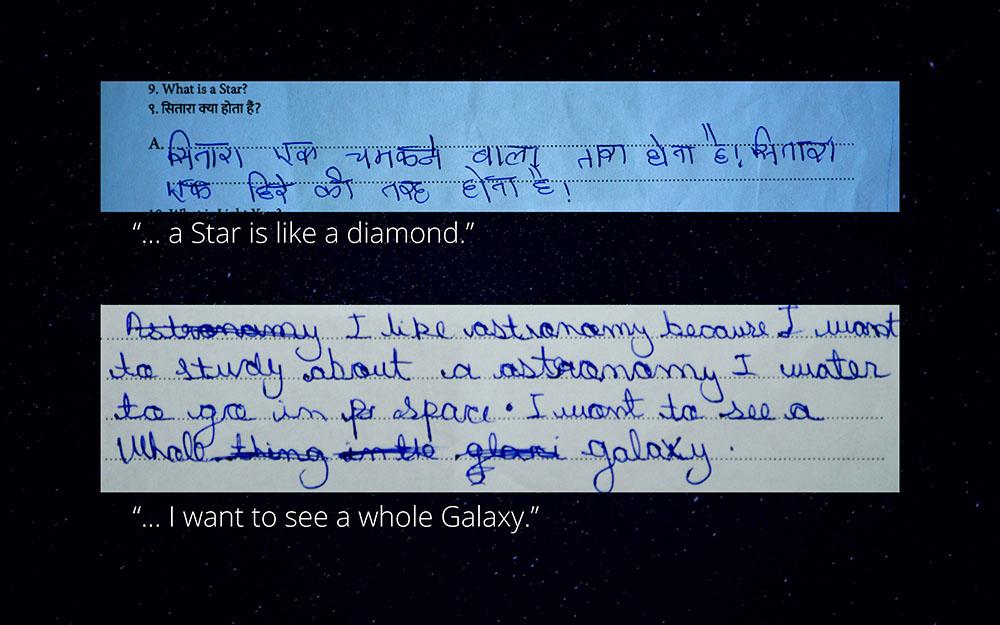 9. What is a Star?
९. सितारा क्या होता है?
A. सितारा एक चमकने वाला तारा होता है। सितारा
एक हिरे की तरह होता है।
“... a Star is like a diamond.”
Astronamy I like astronamy because I want
to study about a astronamy I water
to go in space. I want to see a
Whole thing in the galaxy.
“... I want to see a whole Galaxy.”